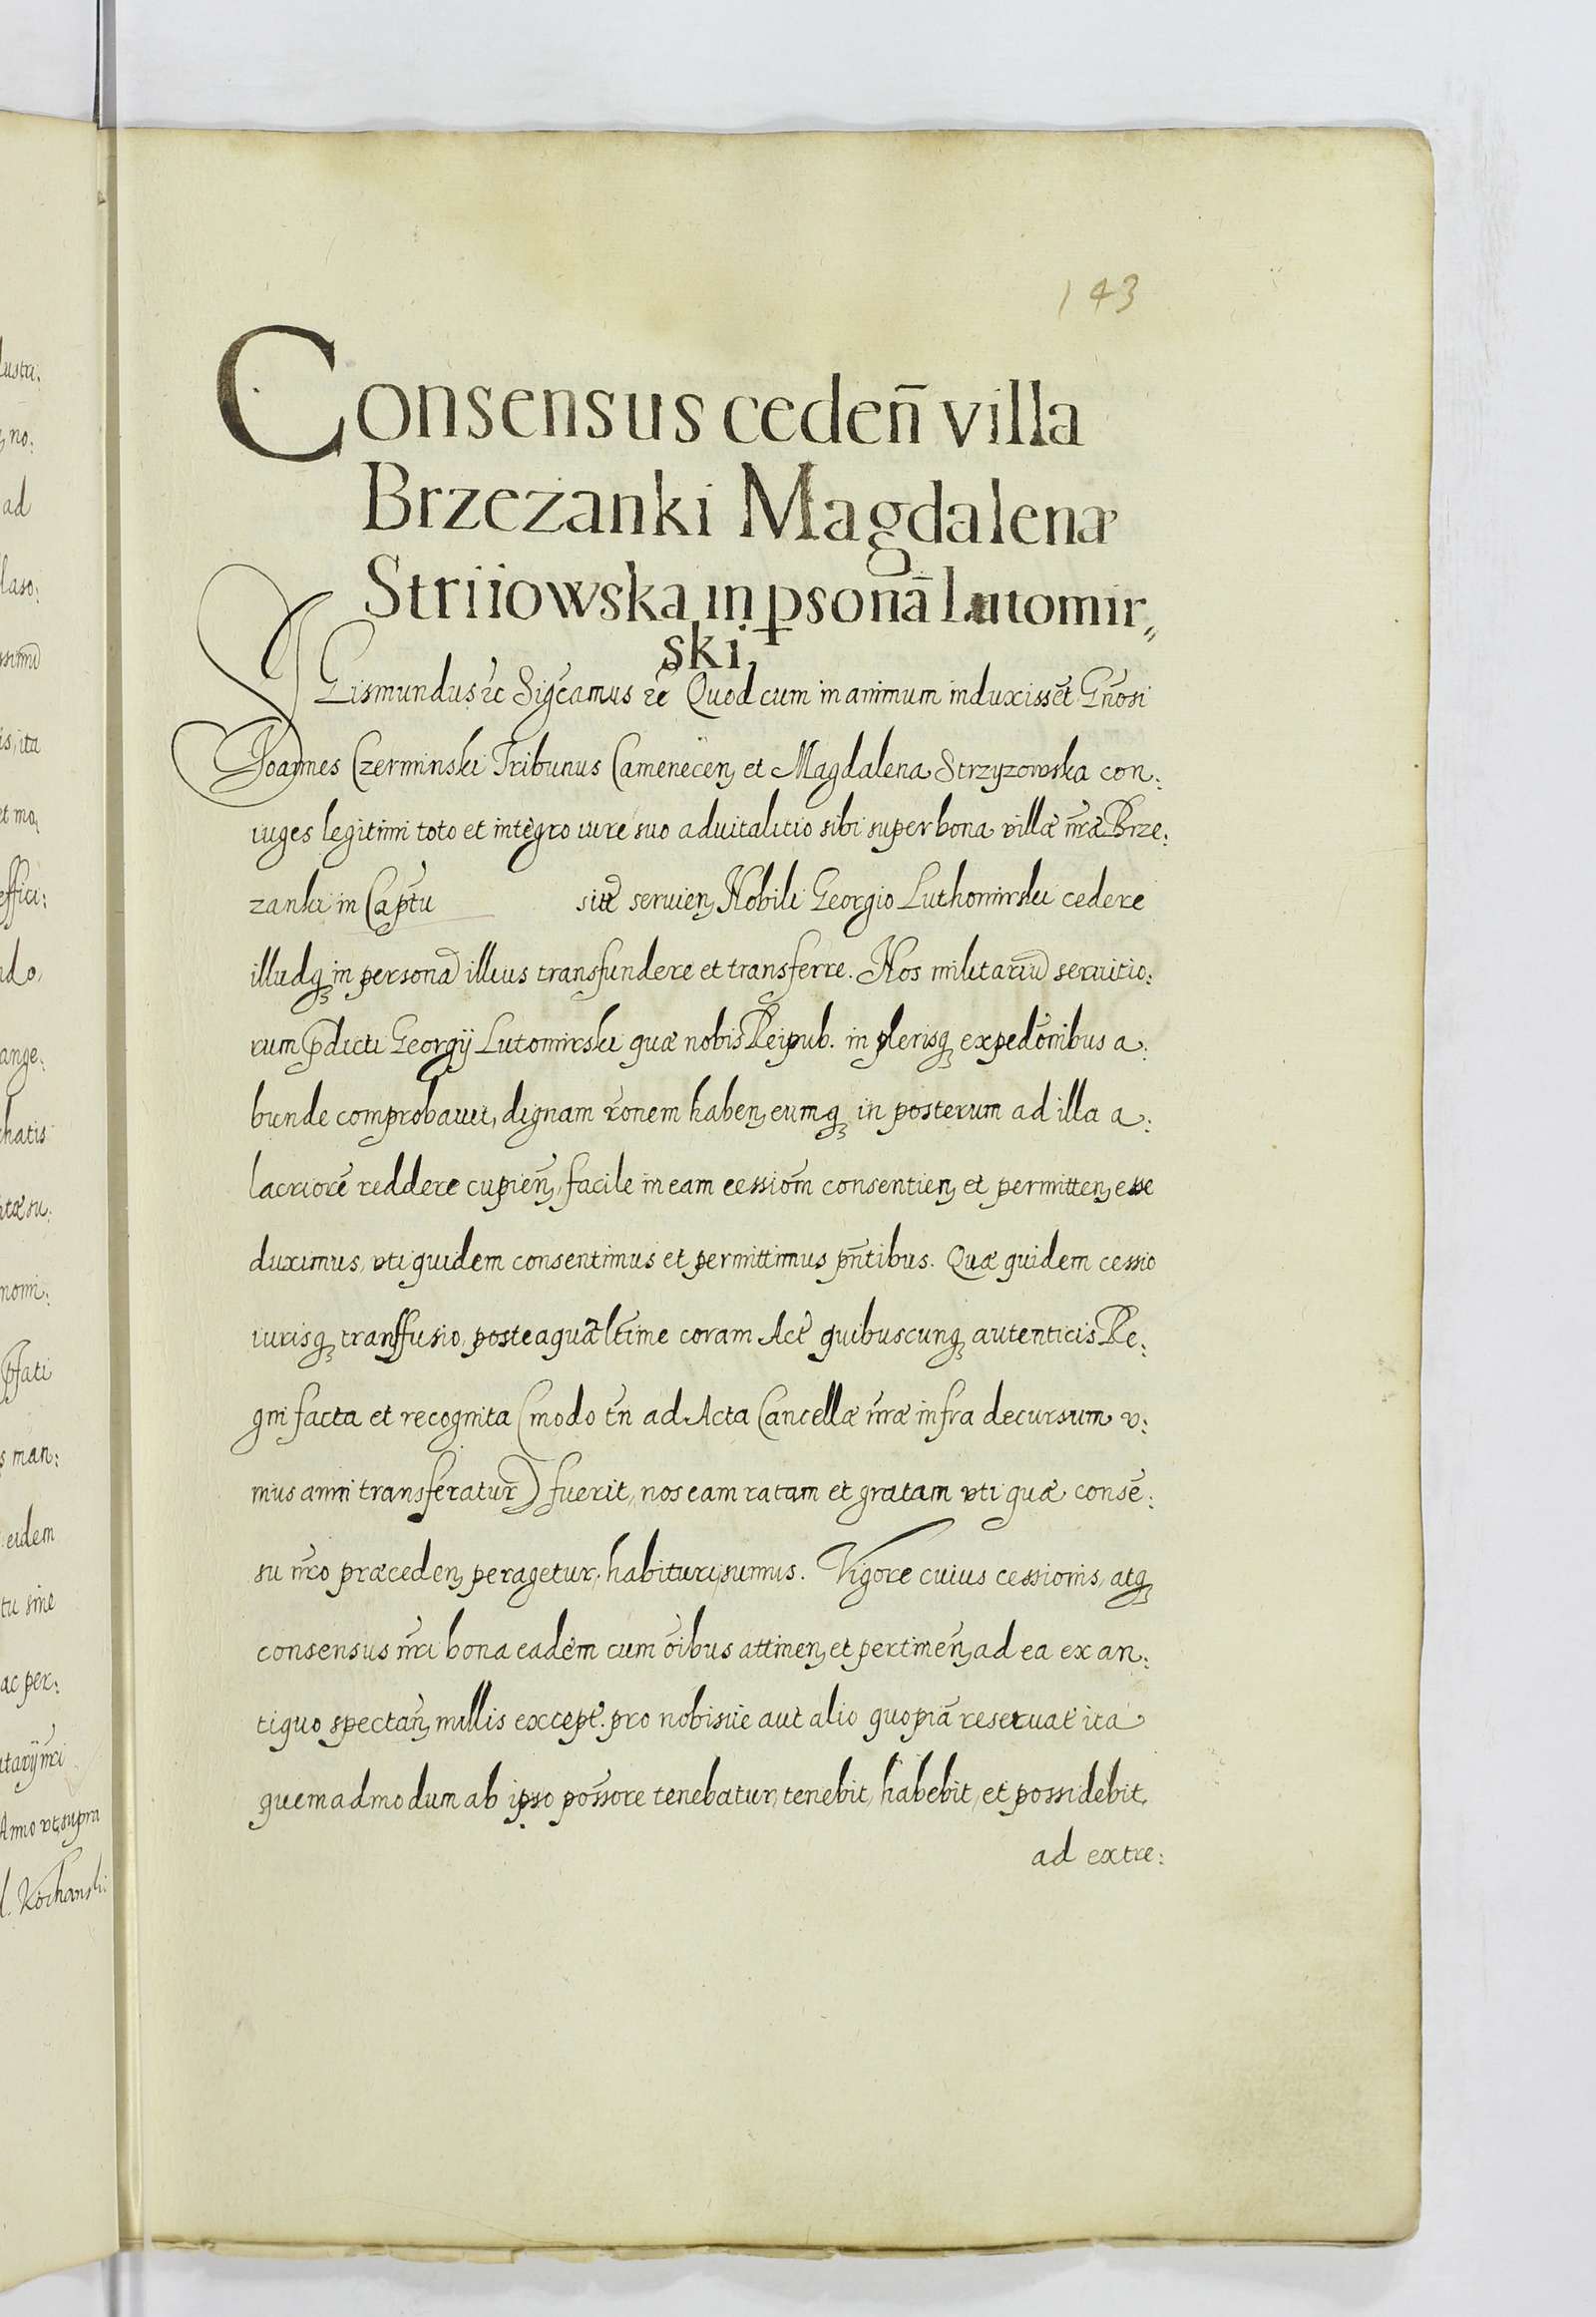 143
Consensus cedeñ villa
Brzezanki Magdalenæ
Striiowska in psonā Lutomir„
ski,
Sigismundus etc Sigcamus etc Quod cum in animum induxissēt Gn̄osi
Joannes Czerminski Tribunus Camenecen, et Magdalena Strzyzowska con:
iuges legitimi toto et integro iure suo aduitalitio sibi super bona villæ nr̄æ Brze:
zanki in Captu sitæ seruien, Nobili Georgio Luthomirski cedere
illudq, in personā illius transfundere et transferre. Nos militariū seruitio:
rum p̄dicti Georgij Lutomirski quæ nobis Reipub. in plerisq, expedōnibus a:
bunde comprobauit, dignam rōnem haben, eumq, in posterum ad illa a:
lacriorē reddere cupien, facile in eam cessiōm consentien, et permitten, esse
duximus, vti quidem consentimus et permittimus pn̄tibus. Quæ quidem cessio
iurisq, transfusio, posteaquā ltīme coram Act̄ quibuscunq, autenticis Re:
gni facta et recognita (modo tn̄ ad Acta Cancellæ nr̄æ infra decursum v:
nius anni transferatur) fuerit, nos eam ratam et gratam vti quæ consē:
su nr̄o præceden, peragetur, habituri sumus. Vigore cuius cessionis, atq,
consensus nr̄i bona eadem cum ōibus attinen, et pertinen, ad ea ex an:
tiquo spectan, nullis except̄. pro nobisue aut alio quopiā reseruat̄ ita
quemadmodum ab ipso poss̄ore tenebatur, tenebit, habebit, et possidebit,
ad extre: